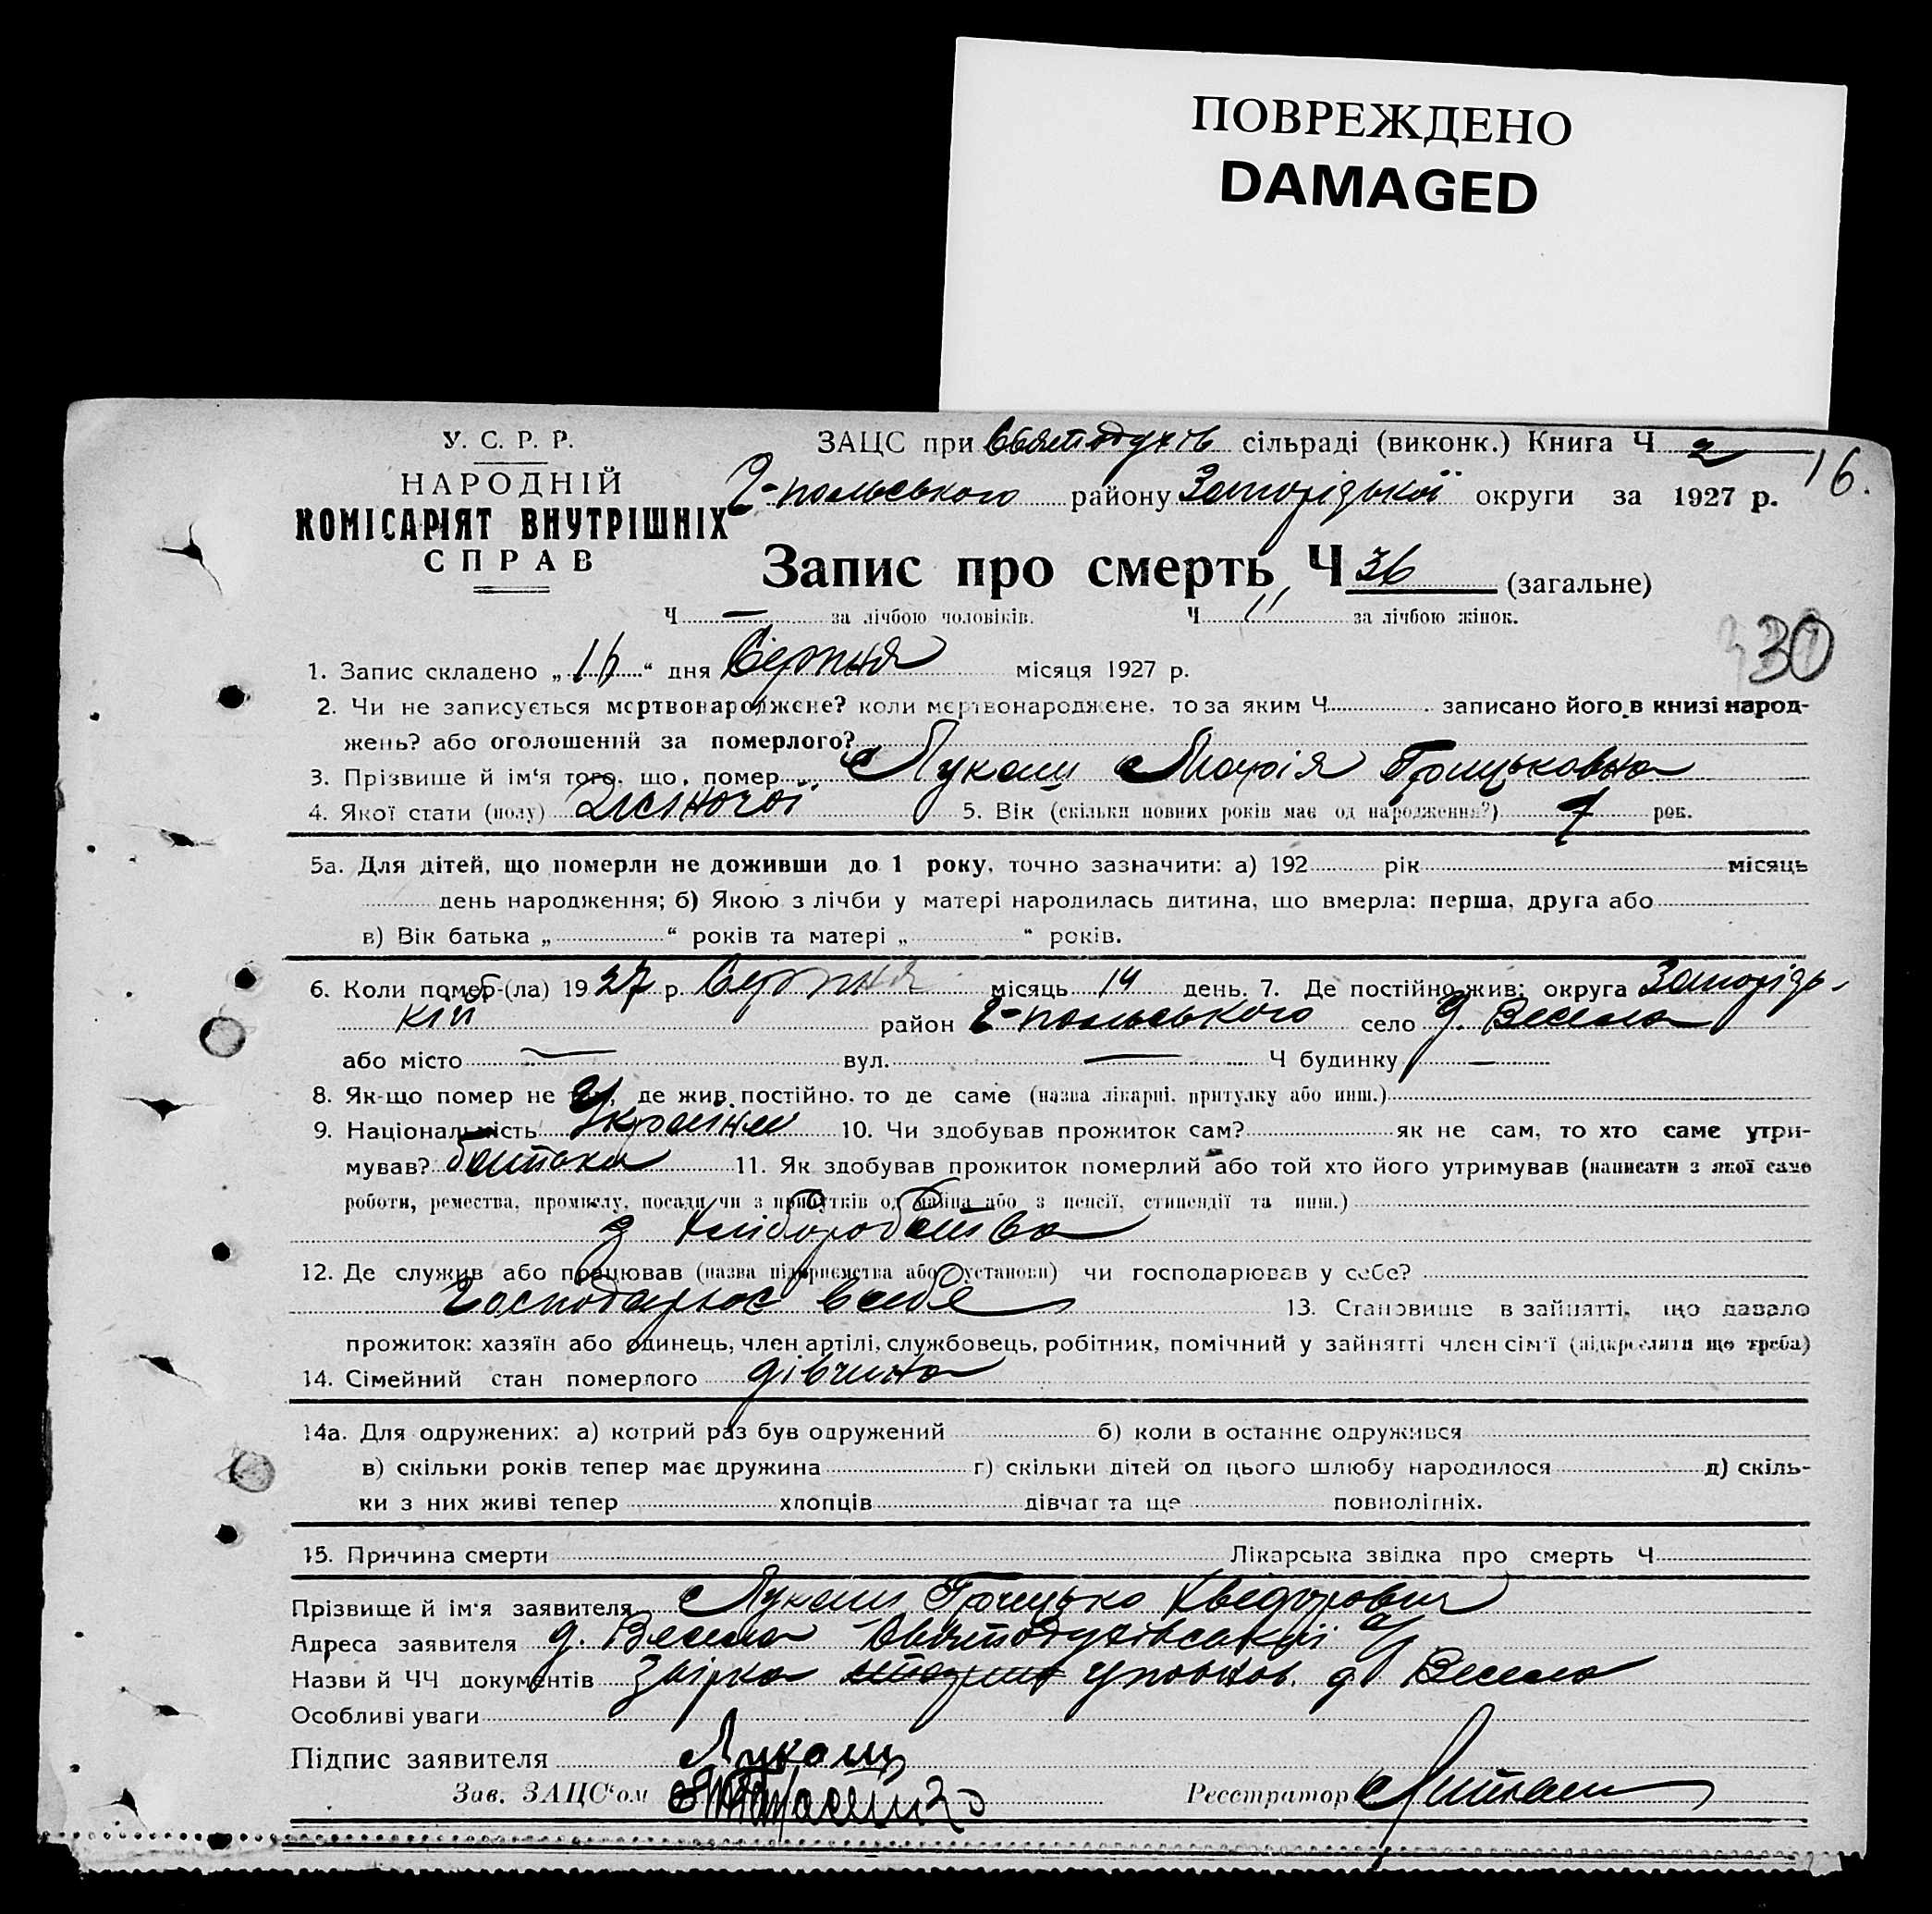 ПОВРЕЖДЕНО
DAMAGED
У. С. Р. Р.
НАРОДНІЙ
КОМІСАРІЯТ ВНУТРІШНІХ
СПРАВ
ЗАЦС при Святодухів сільраді (виконк.) Книга Ч 2
16.
Г-польського району Запорізької округи за 1927 р.
Запис про смерть Ч 36 (загальне)
Ч — за лічбою чоловіків. Ч 11 за лічбою жінок.
30
1. Запис складено „ “ дня Серпня місяця 1927 р.
2. Чи не записується мертвонароджене? коли мертвонароджене, то за яким Ч записано його в книзі народ-
жень? або оголошений за померлого?
3. Прізвище й ім‘я того, що помер Лукаш Марія Грицьковна
4. Якої стати (полу) Жіночої 5. Вік (скільки повних років має од народження?) 7 рок.
5а. Для дітей, що померли не доживши до 1 року, точно зазначити: а) 192 рік місяць
день народження; б) Якою з лічби у матері народилась дитина, що вмерла: перша, друга або
в) Вік батька „ “ років та матері „ “ років.
6. Коли помер-(ла) 1927 р. Серпня місяць 14 день. 7. Де постійно жив: округа Запорізь-
кій район Г-польського село д. Весела
або місто — вул. — Ч будинку —
8. Як-що помер не там, де жив постійно, то де саме (назва лікарні, притулку або инш.)
9. Національність Українка 10. Чи здобував прожиток сам? як не сам, то хто саме утри-
мував? батько 11. Як здобував прожиток померлий або той хто його утримував (написати з якої саме
роботи, ремества, промислу, посади чи з прибутків од майна або з пенсії, стипендії та инш.)
З хліборобства
12. Де служив або працював (назва підприємства або установи) чи господарював у себе?
Господарює в себе 13. Становище в зайнятті, що давало
прожиток: хазяїн або одинець, член артілі, службовець, робітник, помічний у зайнятті член сім‘ї (підкреслити що треба)
14. Сімейний стан померлого дівчина
14а. Для одружених: а) котрий раз був одружений б) коли в останнє одружився
в) скільки років тепер має дружина г) скільки дітей од цього шлюбу народилося д) скіль-
ки з них живі тепер хлопців дівчат та ще повнолітніх.
15. Причина смерти Лікарська звідка про смерть Ч
Прізвище й ім‘я заявителя Лукаш Грицько Хведорович
Адреса заявителя д. Весела Святодухівської с/р
Назви й ЧЧ документів Звірка уповнов. д. Весела
Особливі уваги
Підпис заявителя Лукаш
Зав. ЗАЦС‘ом Реєстратор